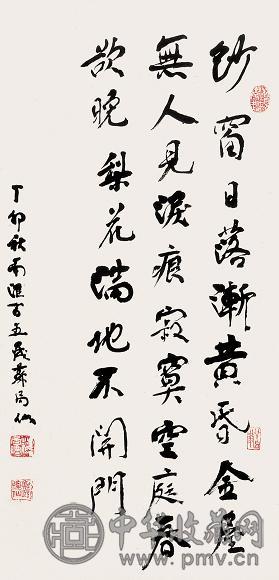 纱窗日落渐黄昏金屋
無人見淚痕寂寞空庭春
欲晚梨花滿地不開門
丁卯秋南匯百五歲蘇局仙
中华收藏网
www.pmv.cn